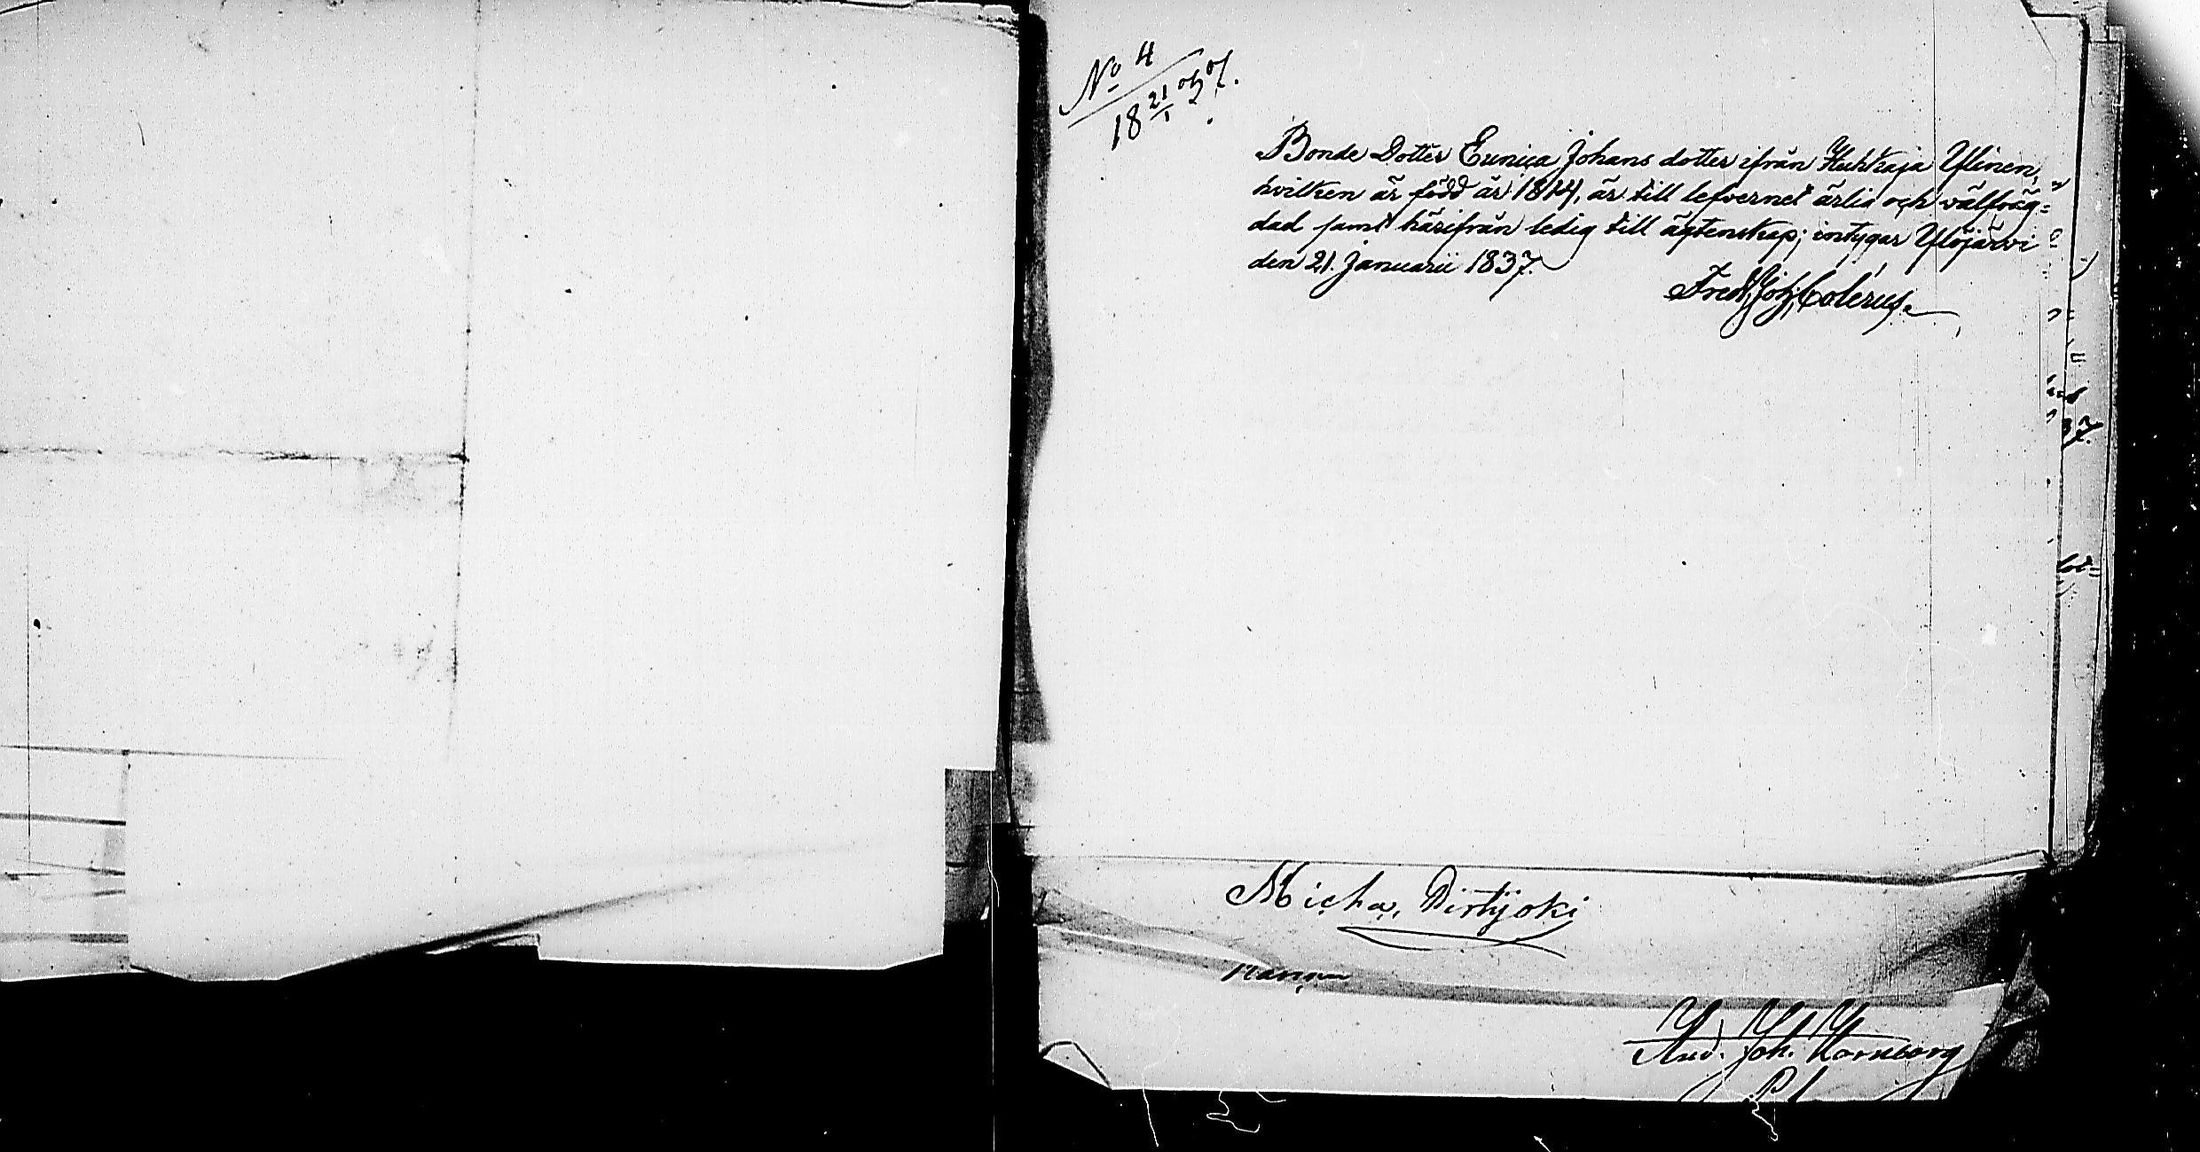 No 4
18 21/1 37.
Bonde Dotter Eunica Johans dotter ifrån Huhkaja Ylinen,
hvilken är född år 1814, är till lefvernet ärlig och välfräg=
dad samt härifrån ledig till ägtenskap; intygar Ylöjärvi
den 21. Januarii 1837.
Fred. Joh. Colerus.
37.
Micha,
And. Joh.